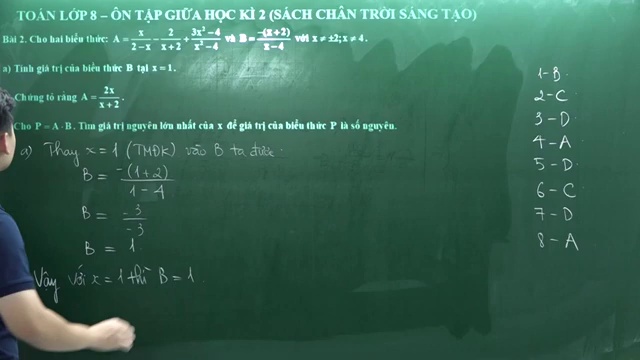 TOÁN LỚP 8 – ÔN TẬP GIỮA HỌC KÌ 2 (SÁCH CHÂN TRỜI SÁNG TẠO)
Bài 2. Cho hai biểu thức: A = x/(2−x) − 2/(x+2) + (3x²−4)/(x²−4) và B = −(x+2)/(x−4) với x ≠ ±2; x ≠ 4.
a) Tính giá trị của biểu thức B tại x = 1.
Chứng tỏ rằng A = 2x/(x+2).
Cho P = A · B. Tìm giá trị nguyên lớn nhất của x để giá trị của biểu thức P là số nguyên.
a) Thay x = 1 (TMĐK) vào B ta được:
B = −(1+2)/(1−4)
B = −3/−3
B = 1.
Vậy với x = 1 thì B = 1
1 – B
2 – C
3 – D
4 – A
5 – D
6 – C
7 – D
8 – A